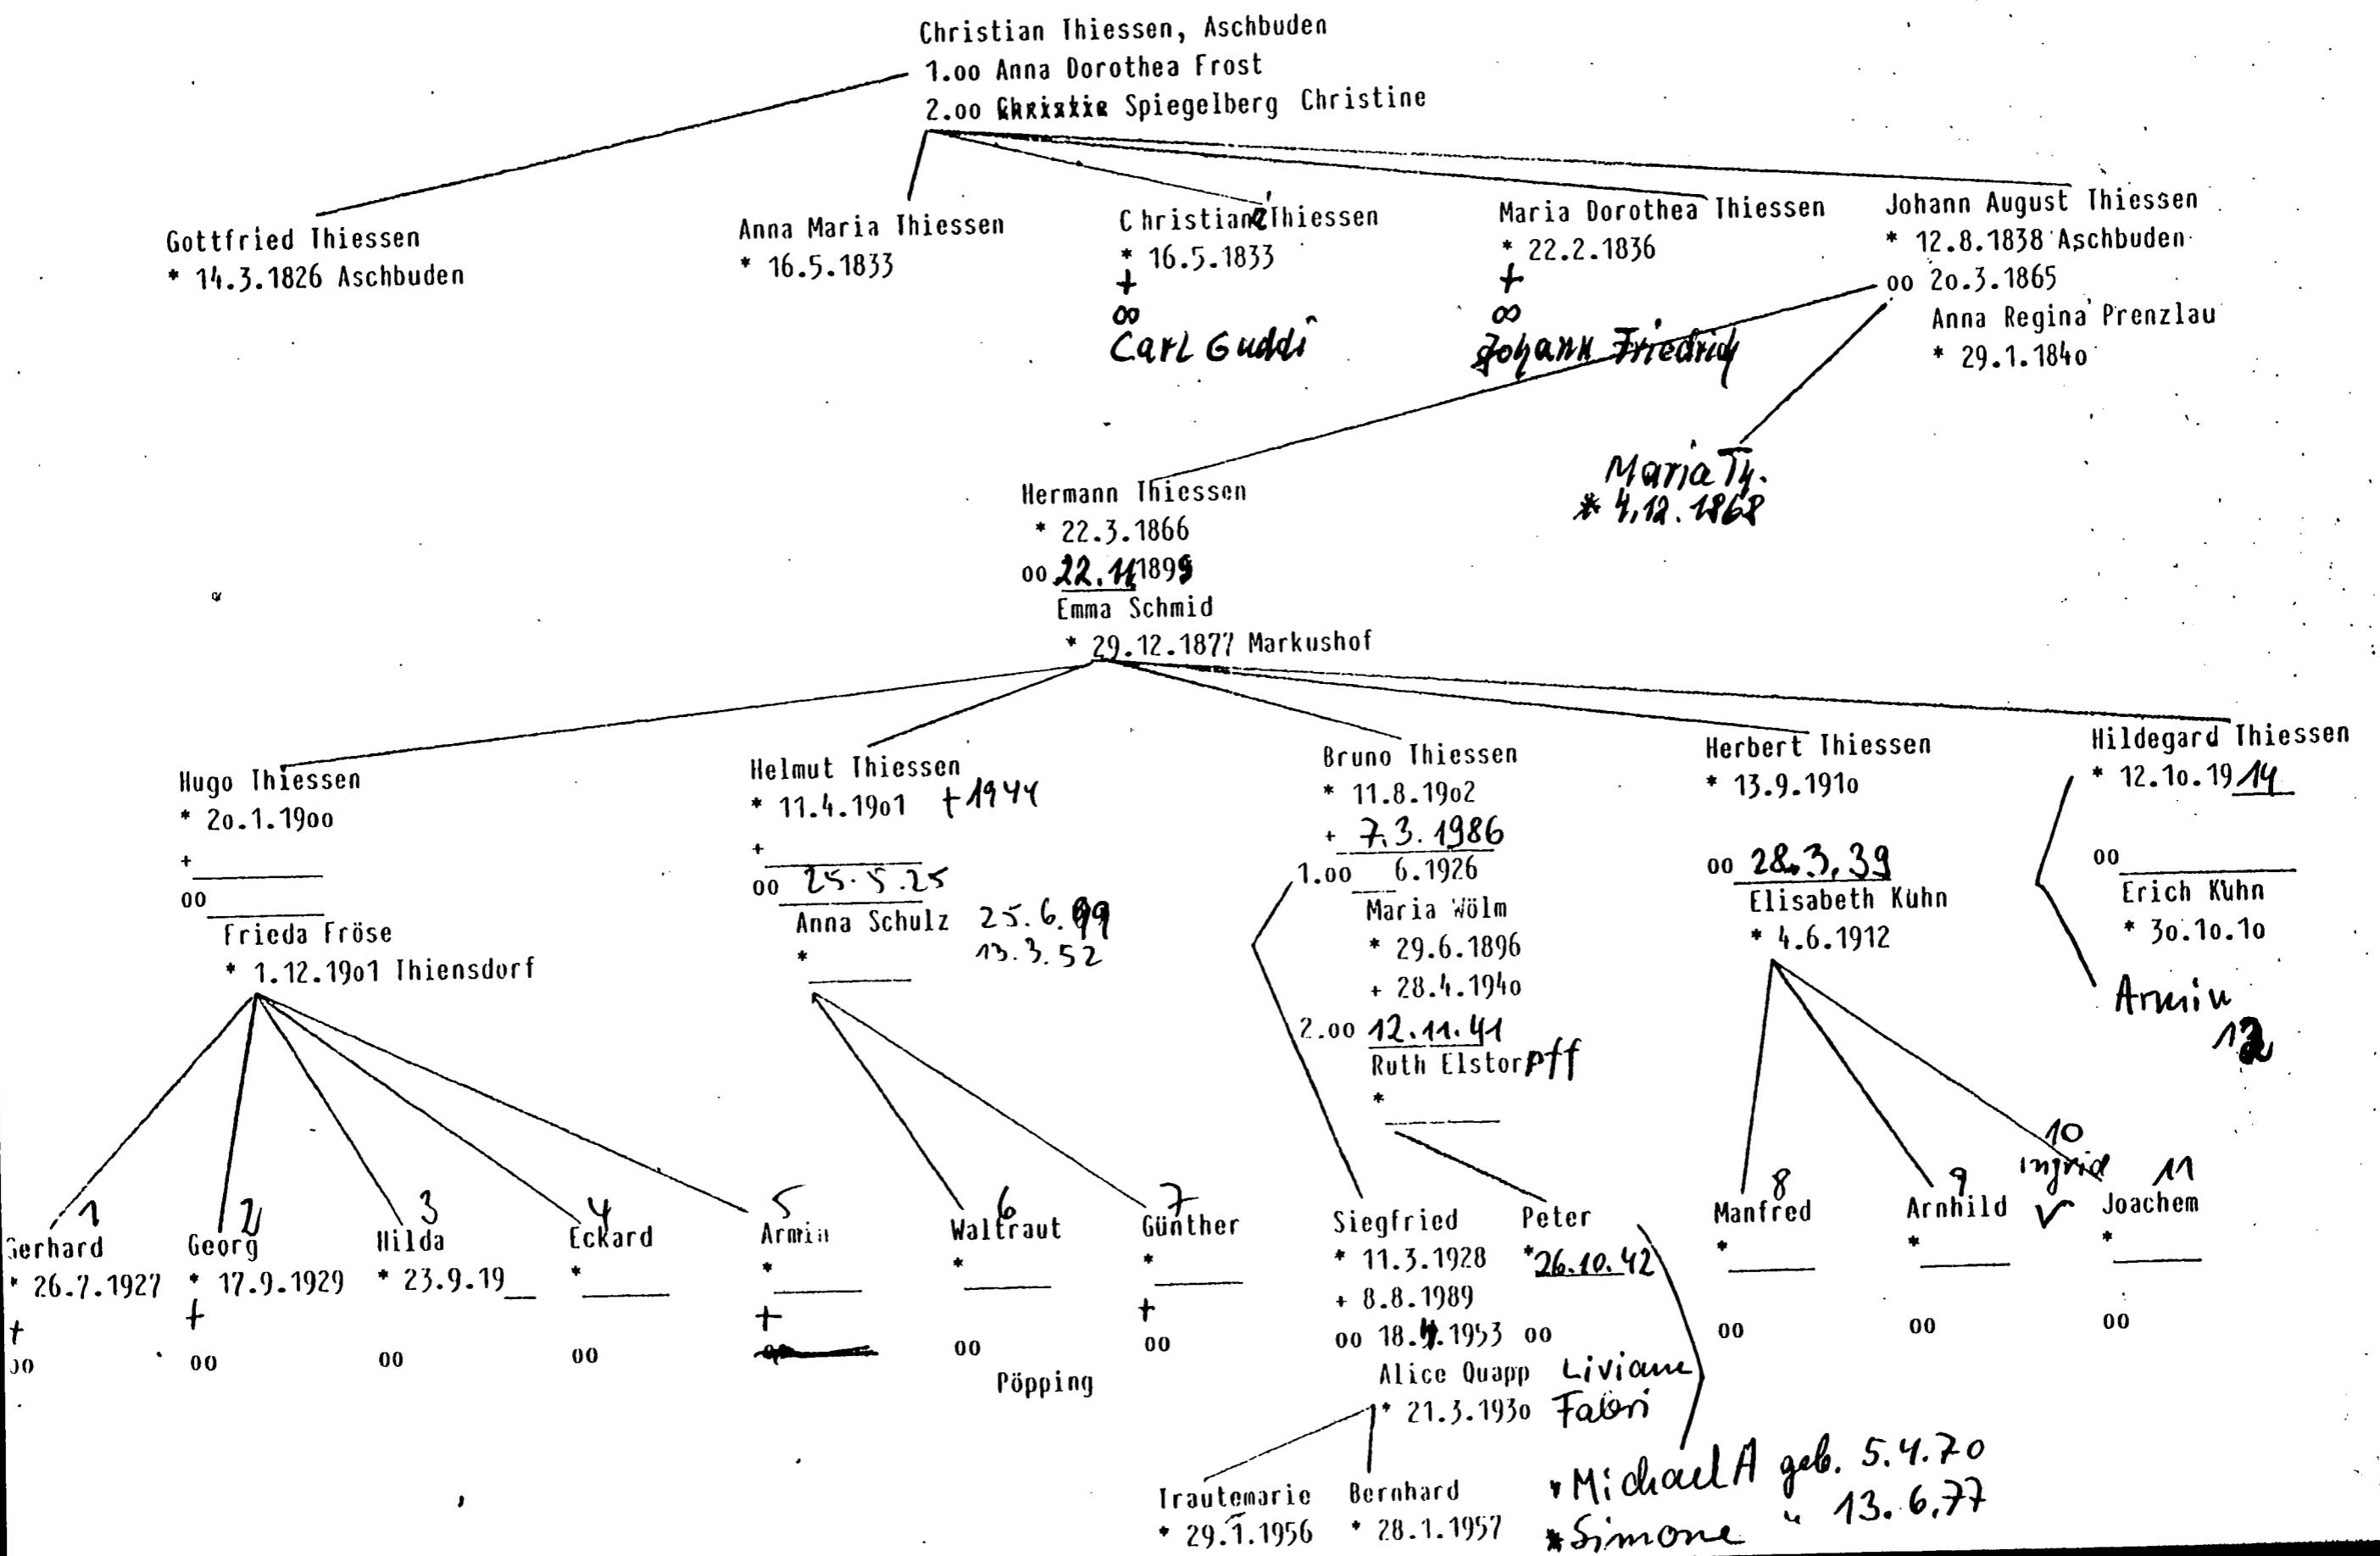 Christian Thiessen, Aschbuden
1.oo Anna Dorothea Frost
2.oo Spiegelberg Christine
Gottfried Thiessen
* 14.3.1826 Aschbuden
Anna Maria Thiessen
* 16.5.1833
Christiane Thiessen
* 16.5.1833
+
∞
Carl Guddi
Maria Dorothea Thiessen
* 22.2.1836
+
∞
Johann Friedrich
Johann August Thiessen
* 12.8.1838 Aschbuden
oo 2o.3.1865
Anna Regina Prenzlau
* 29.1.184o
Hermann Thiessen
* 22.3.1866
oo 22.11 1899
Emma Schmid
* 29.12.1877 Markushof
Maria Th.
* 4.12.1868
Hugo Thiessen
* 2o.1.19oo
+
oo
Frieda Fröse
* 1.12.19o1 Thiensdorf
Helmut Thiessen
* 11.4.19o1 +1944
+
oo 25.5.25
Anna Schulz 25.6.99
* 13.3.52
Bruno Thiessen
* 11.8.19o2
+ 7.3.1986
1.oo 6.1926
Maria Wölm
* 29.6.1896
+ 28.4.194o
2.oo 12.11.41
Ruth Elstorpff
*
Herbert Thiessen
* 13.9.191o
oo 28.3.39
Elisabeth Kuhn
* 4.6.1912
Hildegard Thiessen
* 12.1o.19 14
oo
Erich Kuhn
* 3o.1o.1o
Armin
1
Gerhard
* 26.7.1927
+
oo
2
Georg
* 17.9.1929
+
oo
3
Hilda
* 23.9.19__
oo
4
Eckard
*
oo
5
Armin
*
+
6
Waltraut
*
oo
Pöpping
7
Günther
*
+
oo
Siegfried
* 11.3.1928
+ 8.8.1989
oo 18.4.1953
Alice Quapp
* 21.3.193o
Peter
*26.10.42
oo
Liviane
Fabri
8
Manfred
*
oo
9
Arnhild
*
oo
10
Ingrid
11
Joachem
*
oo
Trautemarie
* 29.1.1956
Bernhard
* 28.1.1957
* Michael A geb. 5.4.70
* Simone " 13.6.77